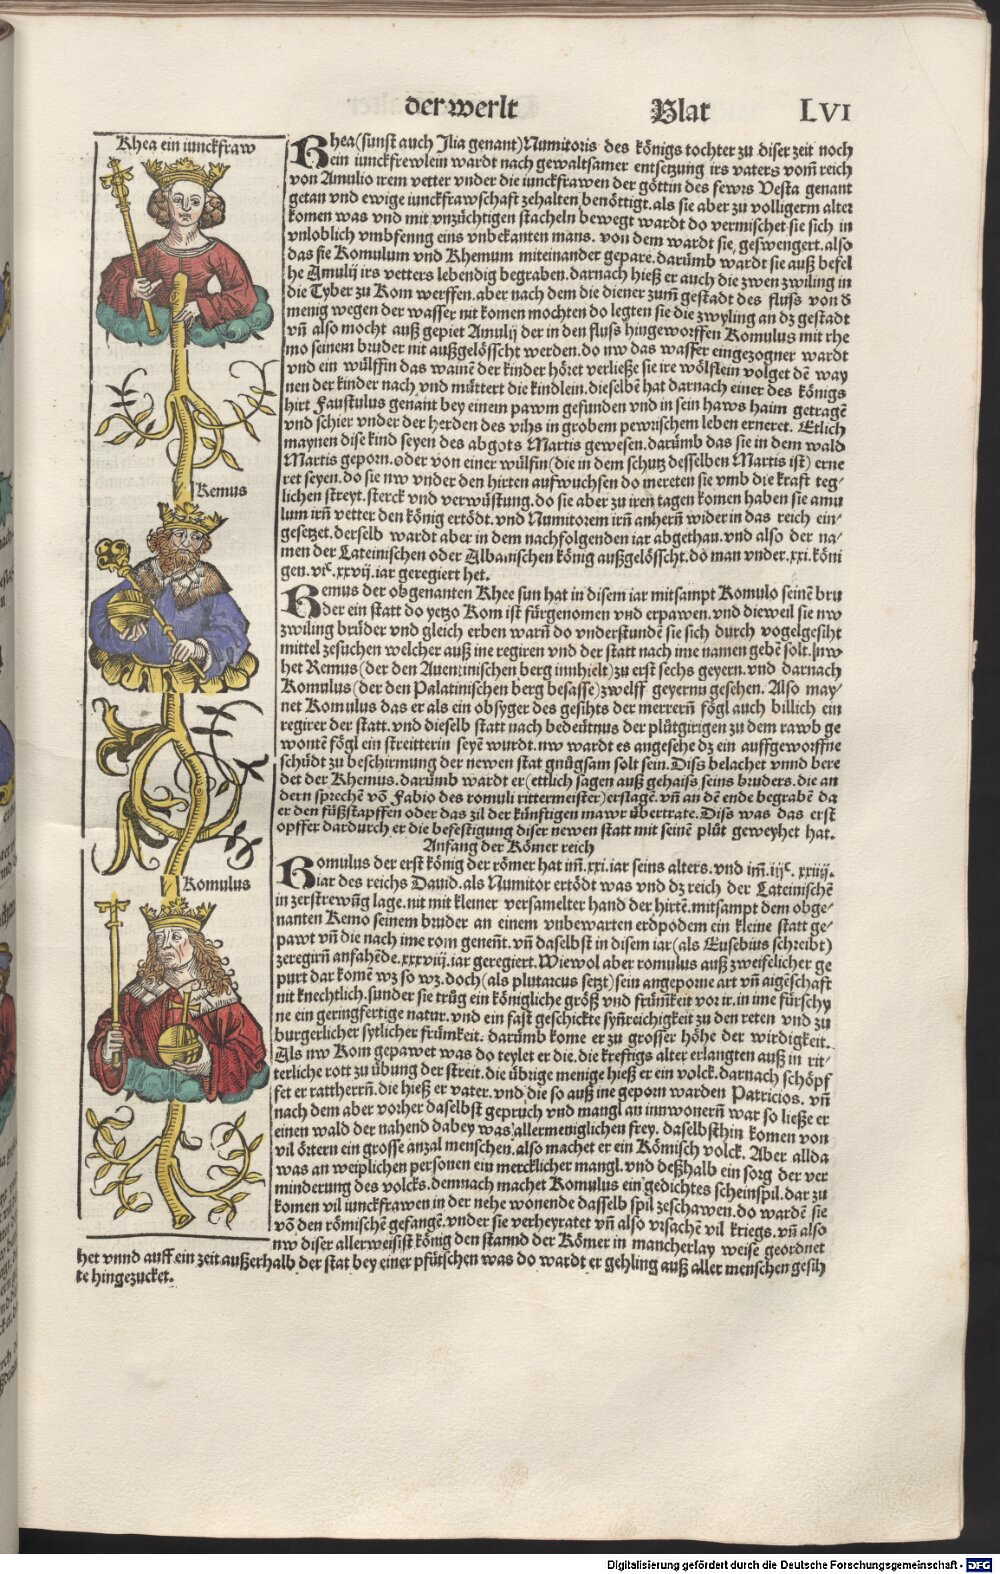 der werlt Blat LVI
Rhea ein iunckfraw
Remus
Romulus
Rhea (sunst auch Jlia genant) Numitoris des königs tochter zu diser zeit noch
ein iunckfrewlein wardt nach gewaltsamer entsetzung irs vaters vom̃ reich
von Amulio irem vetter vnder die iunckfrawen der göttin des fewrs Vesta genant
getan vnd ewige iunckfrawschaft zehalten benöttigt. als sie aber zu volligerm alter
komen was vnd mit vnzüchtigen stacheln bewegt wardt do vermischet sie sich in
vnloblich vmbfenng eins vnbekanten mans. von dem wardt sie geswengert. also
das sie Romulum vnd Rhemum miteinander gepare. darümb wardt sie auß befel
he Amulij irs vetters lebendig begraben. darnach hieß er auch die zwen zwiling in
die Tyber zu Rom werffen. aber nach dem die diener zum̃ gestadt des fluss von d
menig wegen der wasser nit komen mochten do legten sie die zwyling an dz gestadt
vñ also mocht auß gepiet Amulij der in den fluss hingeworffen Romulus mit rhe
mo seinem bruder nit außgelösscht werden. do nw das wasser eingezogner wardt
vnd ein wülffin das wainẽ der kinder höret verließe sie ire wölflein volget dẽ way
nen der kinder nach vnd müttert die kindlein. dieselben hat darnach einer des königs
hirt Faustulus genant bey einem pawm gefunden vnd in sein haws haim getragẽ
vnd schier vnder der herden des vihs in grobem pewrischem leben erneret. Etlich
maynen dise kind seyen des abgots Martis gewesen. darümb das sie in dem wald
Martis geporn. oder von einer wülfin (die in dem schutz desselben Martis ist) erne
ret seyen. do sie nw vnder den hirten aufwuchsen do mereten sie vmb die kraft teg-
lichen streyt. sterck vnd verwüstung. do sie aber zu iren tagen komen haben sie amu
lum irñ vetter den könig ertödt. vnd Numitorem irñ anhern wider in das reich ein-
gesetzet. derselb wardt aber in dem nachfolgenden iar abgethan. vnd also der na-
men der Lateinischen oder Albanischen könig außgelösscht. do man vnder .xxi. köni
gen. viᶜ. xxvij. iar geregiert het.
Remus der obgenanten Rhee sun hat in disem iar mitsampt Romulo seinẽ bru
der ein statt do yetzo Rom ist fürgenomen vnd erpawen. vnd dieweil sie nw
zwiling brüder vnd gleich erben warñ do vnderstundẽ sie sich durch vogelgesiht
mittel zesuchen welcher auß ine regiren vnd der statt nach ime namen gebẽ solt. nw
het Remus (der den Auentinischen berg innhielt) zu erst sechs geyern. vnd darnach
Romulus (der den Palatinischen berg besasse) zwelff geyernn gesehen. Also may-
net Romulus das er als ein obsyger des gesihts der merrern̄ fögl auch billich ein
regirer der statt. vnd dieselb statt nach bedeütnus der plütgirigen zu dem rawb ge
wontẽ fögl ein streitterin seyẽ wurdt. nw wardt es angesehẽ dz ein auffgeworffne
schüdt zu beschirmung der newen stat gnügsam solt sein. Diss belachet vnnd bere
det der Rhemus. darümb wardt er (ettlich sagen auß gehaiss seins bruders. die an
dern sprechẽ võ Fabio des romuli rittermeister) erslagẽ. vñ an dẽ ende begrabẽ da
er den füßstapffen oder das zil der künftigen mawr übertrate. Diss was das erst
opffer dardurch er die befestigung diser newen statt mit seinẽ plüt geweyhet hat.
Anfang der Römer reich
Romulus der erst könig der römer hat im̃. xxi. iar seins alters. vnd im̃. iijᶜ. xxiiij.
iar des reichs David. als Numitor ertödt was vnd dz reich der Lateinischẽ
in zerstrewũg lage. nit mit kleiner versamelter hand der hirtẽ. mitsampt dem obge-
nanten Remo seinem bruder an einem vnbewarten erdpodem ein kleine statt ge-
pawt vñ die nach ime rom geneñt. vñ daselbst in disem iar (als Eusebius schreibt)
zeregirñ anfahẽde. xxxviij. iar geregiert. Wiewol aber romulus auß zweifelicher ge
purt dar komẽ wz so wz. doch (als plutarcus setzt) sein angeporne art vñ aigẽschaft
nit knechtlich. sunder sie trüg ein königliche größ vnd frümkeit vor ir. in ime fürschy
ne ein geringfertige natur. vnd ein fast geschickte syñreichigkeit zu den reten vnd zu
burgerlicher sytlicher frümkeit. darümb kome er zu grosser höhe der wirdigkeit.
Als nw Rom gepawet was do teylet er die. die kreftigs alter erlangten auß in rit-
terliche rott zu übung der streit. die übrige menige hieß er ein volck. darnach schöpf
fet er rattherrñ. die hieß er vater. vnd die so auß ine geporn warden Patricios. vñ
nach dem aber vorher daselbst gepruch vnd mangl an innwonern̄ war so ließe er
einen wald der nahend dabey was allermeniglichen frey. daselbsthin komen von
vil örtern ein grosse anzal menschen. also machet er ein Römisch volck. Aber allda
was an weiplichen personen ein mercklicher mangl. vnd deßhalb ein sorg der ver
minderung des volcks. demnach machet Romulus ein gedichtes scheinspil. dar zu
komen vil iunckfrawen in der nehe wonende dasselb spil zeschawen. do wardẽ sie
võ den römischẽ gefangẽ. vnder sie verheyratet vñ also vrsachẽ vil kriegs. vñ also
nw diser allerweisist könig den stannd der Römer in mancherlay weise geordnet
het vnnd auff ein zeit außerhalb der stat bey einer pfütschen was do wardt er gehling auß aller menschen gesih
te hingezucket.
Digitalisierung gefördert durch die Deutsche Forschungsgemeinschaft - DFG